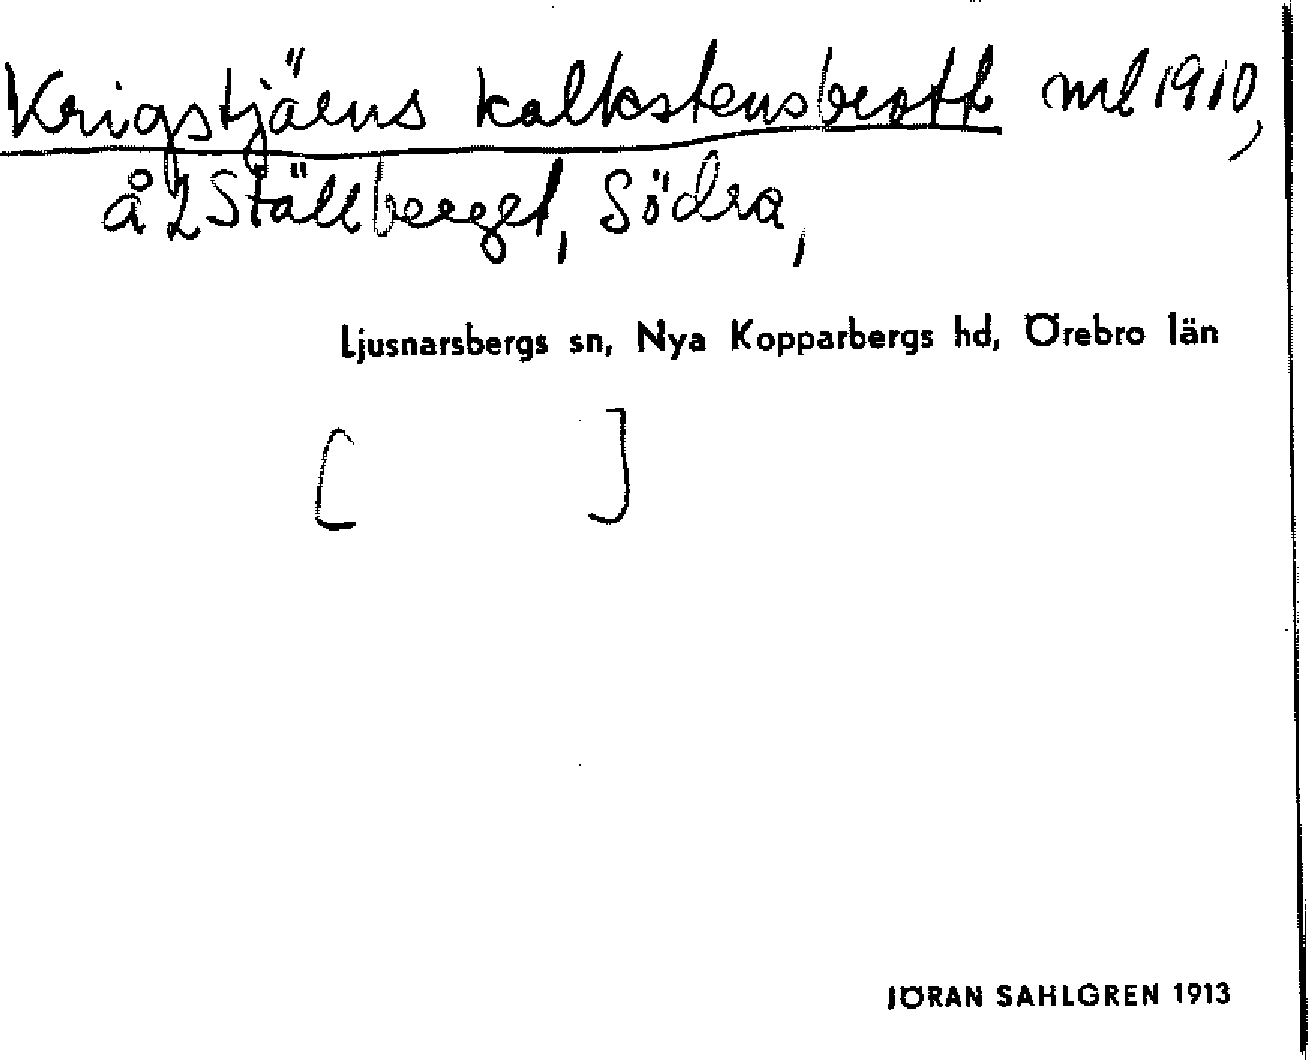 Krigstjärns kalkstensbrott ml 1910,
å 2 Ställberget, Södra,
Ljusnarsbergs sn, Nya Kopparbergs hd, Örebro län
[ ]
JÖRAN SAHLGREN 1913